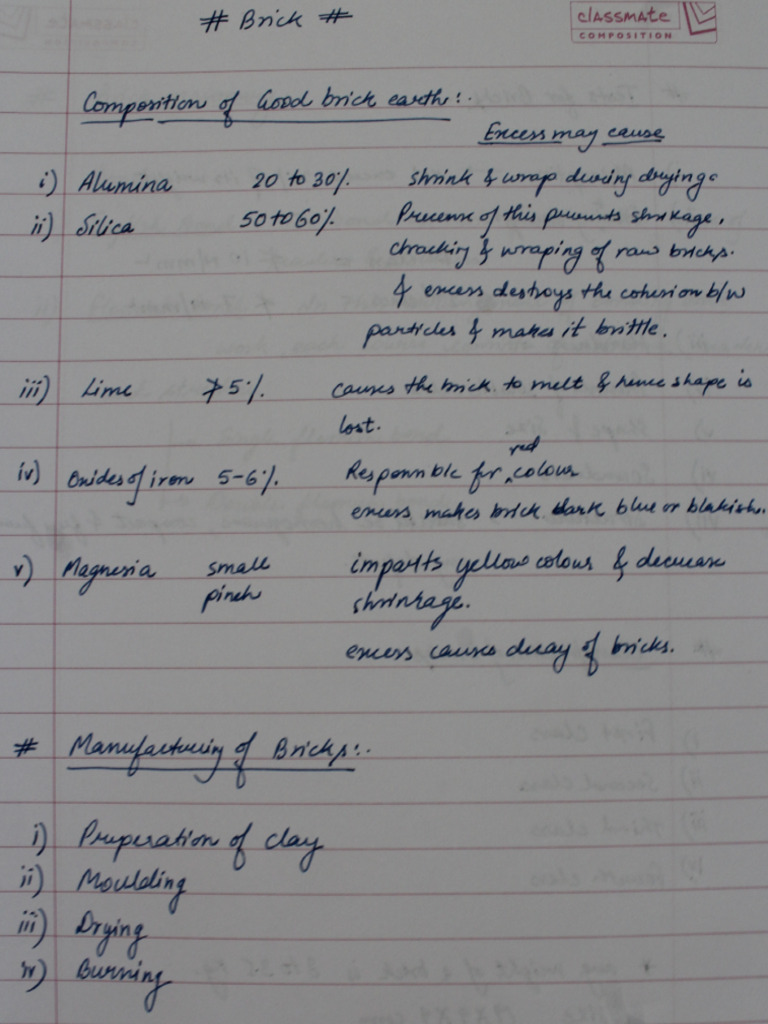 # Brick #
classmate
COMPOSITION
Composition of Good brick earth:.
Excess may cause
i) Alumina 20 to 30%. shrink & wrap during drying.
ii) Silica 50 to 60%. Precense of this prevents shrikage,
chracking & wraping of raw bricks.
& excess destroys the cohesion b/w
particles & makes it brittle.
iii) Lime ≯ 5%. causes the brick to melt & hence shape is
lost.
iv) Oxides of iron 5-6%. Responsible for red colour
excess makes brick dark blue or blakish.
v) Magnesia small imparts yellow colour & decrease
pinch shrinkage.
excess causes decay of bricks.
# Manufacturing of Bricks:.
i) Preperation of clay
ii) Moulding
iii) Drying
iv) Burning